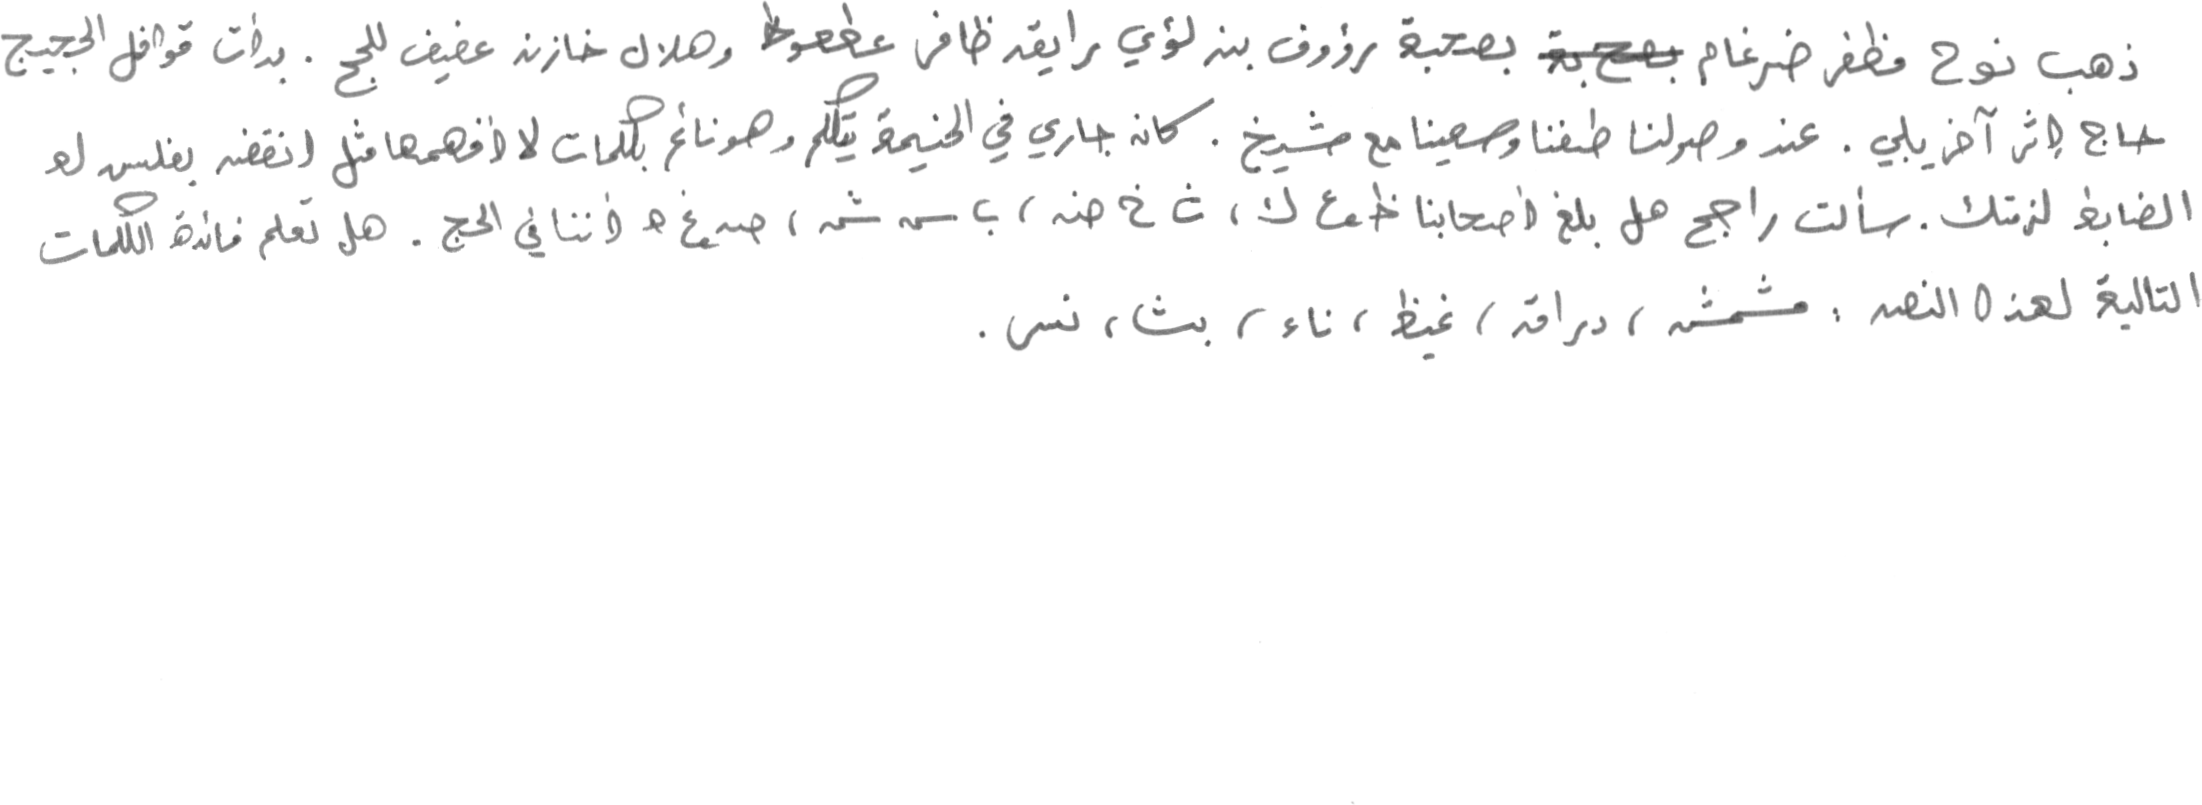 ذهب نوح مظفر ضرغام بصحبة بصحبة رؤوف بن لؤي رايق ظافر عطعوط وهلال خازن عفيف للحج . بدأت قوافل الحجيج
حاج إثر آخر يلبي . عند وصولنا طفنا وسعينا مع شيخ . كان جاري في الخيمة يتكلم وهو نائم بكلمات لا أفهمها مثل انقض بغلس لع
الضابط لزمتك . سألت راجح هل بلغ أصحابنا ظ ع ك ، غ خ ض ، ب س ش ، ص غ ه أننا في الحج . هل تعلم فائدة الكلمات
التالية لهذا النص : مشمش ، دراق ، غيظ ، ناء ، بث ، نس .